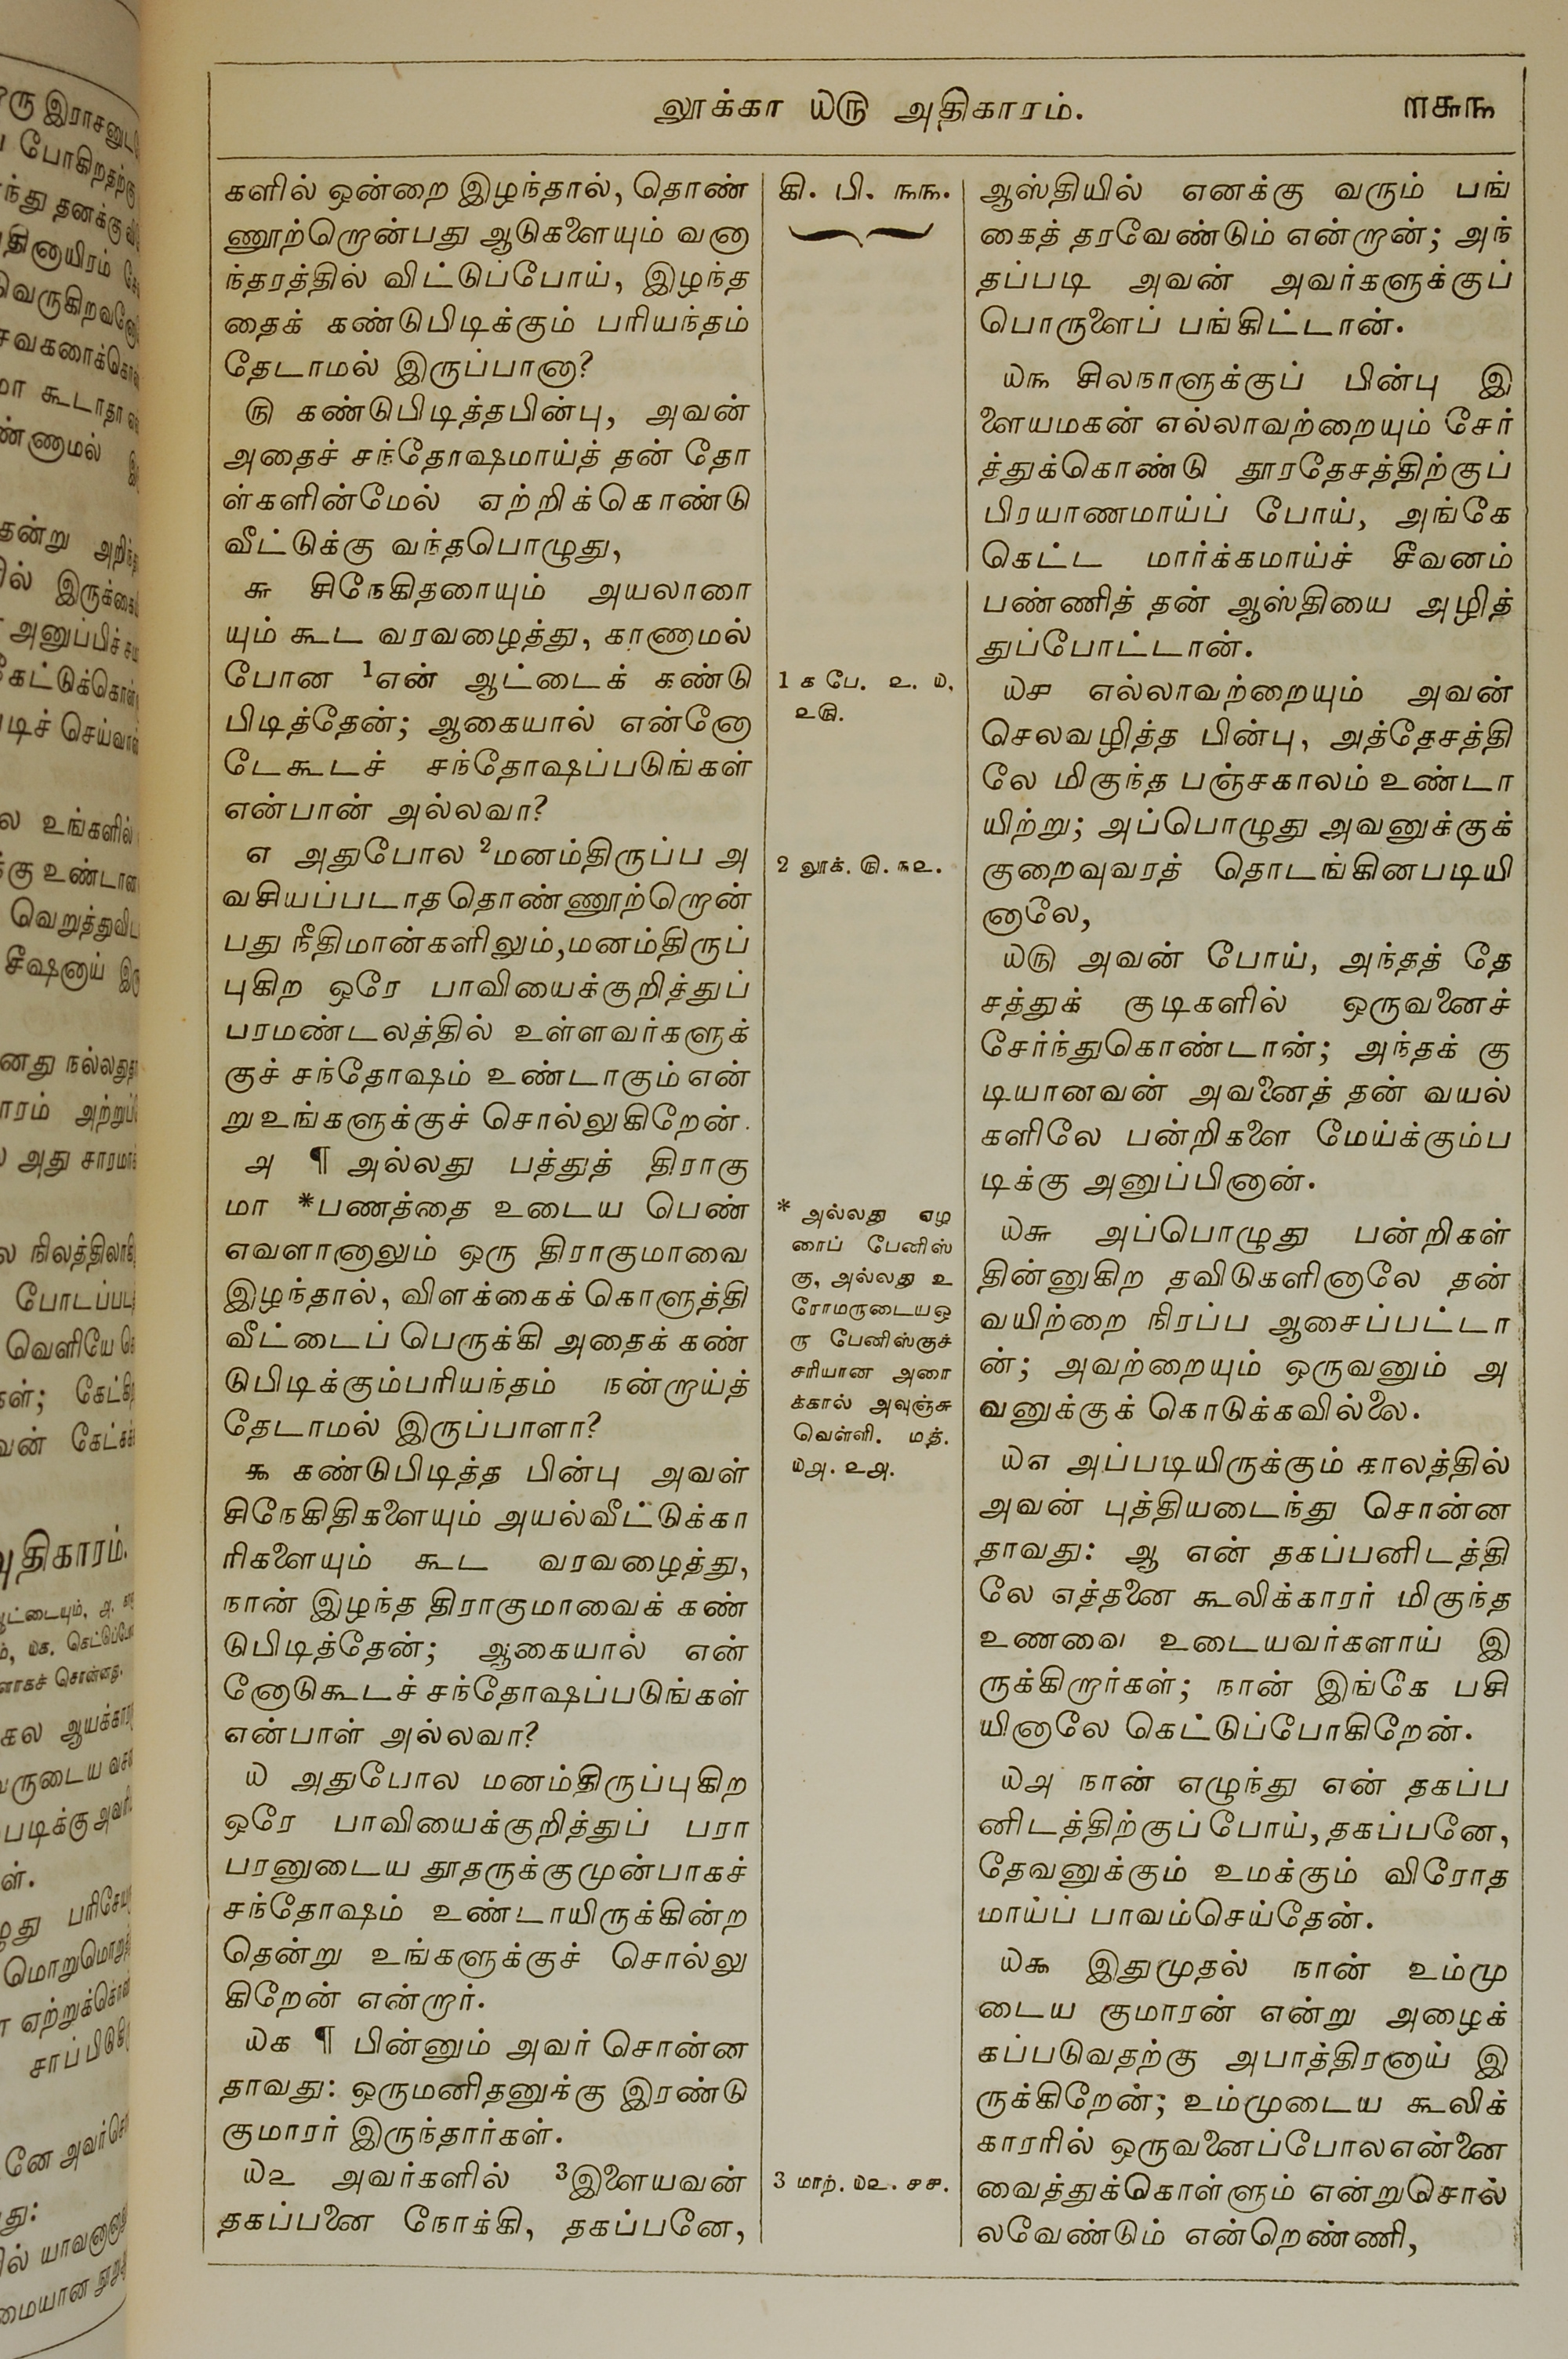 லூக்கா ௰௫ அதிகாரம்.
௱௬௩
களில் ஒன்றை இழந்தால், தொண்
ணூற்றொன்பது ஆடுகளையும் வனா
ந்தரத்தில் விட்டுப்போய், இழந்த
தைக் கண்டுபிடிக்கும் பரியந்தம்
தேடாமல் இருப்பானா?
௫ கண்டுபிடித்தபின்பு, அவன்
அதைச் சந்தோஷமாய்த் தன் தோ
ள்களின்மேல் ஏற்றிக்கொண்டு
வீட்டுக்கு வந்தபொழுது,
௬ சிநேகிதரையும் அயலாரை
யும் கூட வரவழைத்து, காணாமல்
போன 1என் ஆட்டைக் கண்டு
பிடித்தேன்; ஆகையால் என்னோ
டேகூடச் சந்தோஷப்படுங்கள்
என்பான் அல்லவா?
௭ அதுபோல 2மனம்திருப்ப அ
வசியப்படாத தொண்ணூற்றொன்
பது நீதிமான்களிலும், மனம்திருப்
புகிற ஒரே பாவியைக்குறித்துப்
பரமண்டலத்தில் உள்ளவர்களுக்
குச் சந்தோஷம் உண்டாகும் என்
று உங்களுக்குச் சொல்லுகிறேன்.
௮ ¶ அல்லது பத்துத் திராகு
மா *பணத்தை உடைய பெண்
எவளானாலும் ஒரு திராகுமாவை
இழந்தால், விளக்கைக் கொளுத்தி
வீட்டைப் பெருக்கி அதைக் கண்
டுபிடிக்கும்பரியந்தம் நன்றாய்த்
தேடாமல் இருப்பாளா?
௯ கண்டுபிடித்த பின்பு அவள்
சிநேகிதிகளையும் அயல்வீட்டுக்கா
ரிகளையும் கூட வரவழைத்து,
நான் இழந்த திராகுமாவைக் கண்
டுபிடித்தேன்; ஆகையால் என்
னோடுகூடச் சந்தோஷப்படுங்கள்
என்பாள் அல்லவா?
௰ அதுபோல மனம்திருப்புகிற
ஒரே பாவியைக்குறித்துப் பரா
பரனுடைய தூதருக்குமுன்பாகச்
சந்தோஷம் உண்டாயிருக்கின்ற
தென்று உங்களுக்குச் சொல்லு
கிறேன் என்றார்.
௰௧ ¶ பின்னும் அவர் சொன்ன
தாவது: ஒருமனிதனுக்கு இரண்டு
குமாரர் இருந்தார்கள்.
௰௨ அவர்களில் 3இளையவன்
தகப்பனை நோக்கி, தகப்பனே,
கி. பி. ௩௩.
1 ௧ பே. ௨. ௰,
௨௫.
2 லூக். ௫. ௩௨.
* அல்லது ஏழ
ரைப் பேனிஸ்
கு, அல்லது உ
ரோமருடைய ஒ
ரு பேனிஸ்குச்
சரியான அரை
க்கால் அவுஞ்சு
வெள்ளி. மத்.
௰௮. ௨௮.
3 மாற். ௰௨. ௪௪.
ஆஸ்தியில் எனக்கு வரும் பங்
கைத் தரவேண்டும் என்றான்; அந்
தப்படி அவன் அவர்களுக்குப்
பொருளைப் பங்கிட்டான்.
௰௩ சிலநாளுக்குப் பின்பு இ
ளையமகன் எல்லாவற்றையும் சேர்
த்துக்கொண்டு தூரதேசத்திற்குப்
பிரயாணமாய்ப் போய், அங்கே
கெட்ட மார்க்கமாய்ச் சீவனம்
பண்ணித் தன் ஆஸ்தியை அழித்
துப்போட்டான்.
௰௪ எல்லாவற்றையும் அவன்
செலவழித்த பின்பு, அத்தேசத்தி
லே மிகுந்த பஞ்சகாலம் உண்டா
யிற்று; அப்பொழுது அவனுக்குக்
குறைவுவரத் தொடங்கினபடியி
னாலே,
௰௫ அவன் போய், அந்தத் தே
சத்துக் குடிகளில் ஒருவனைச்
சேர்ந்துகொண்டான்; அந்தக் கு
டியானவன் அவனைத் தன் வயல்
களிலே பன்றிகளை மேய்க்கும்ப
டிக்கு அனுப்பினான்.
௰௬ அப்பொழுது பன்றிகள்
தின்னுகிற தவிடுகளினாலே தன்
வயிற்றை நிரப்ப ஆசைப்பட்டா
ன்; அவற்றையும் ஒருவனும் அ
வனுக்குக் கொடுக்கவில்லை.
௰௭ அப்படியிருக்கும் காலத்தில்
அவன் புத்தியடைந்து சொன்ன
தாவது: ஆ என் தகப்பனிடத்தி
லே எத்தனை கூலிக்காரர் மிகுந்த
உணவை உடையவர்களாய் இ
ருக்கிறார்கள்; நான் இங்கே பசி
யினாலே கெட்டுப்போகிறேன்.
௰௮ நான் எழுந்து என் தகப்ப
னிடத்திற்குப்போய், தகப்பனே,
தேவனுக்கும் உமக்கும் விரோத
மாய்ப் பாவம்செய்தேன்.
௰௯ இதுமுதல் நான் உம்மு
டைய குமாரன் என்று அழைக்
கப்படுவதற்கு அபாத்திரனாய் இ
ருக்கிறேன்; உம்முடைய கூலிக்
காரரில் ஒருவனைப்போல என்னை
வைத்துக்கொள்ளும் என்றுசொல்
லவேண்டும் என்றெண்ணி,